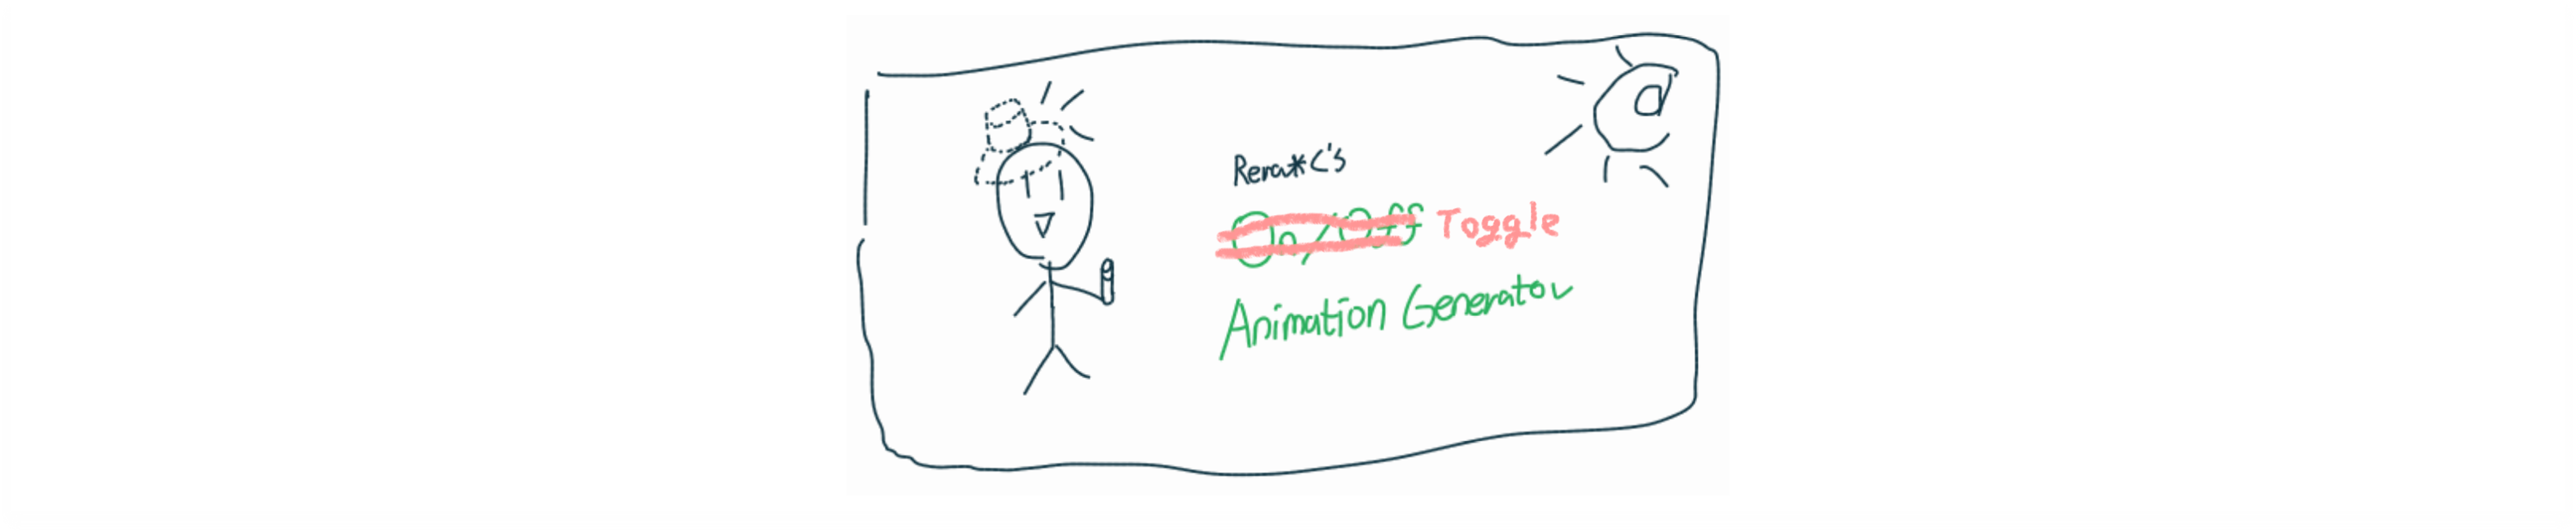 Rera*C's
On/Off Toggle
Animation Generator
a